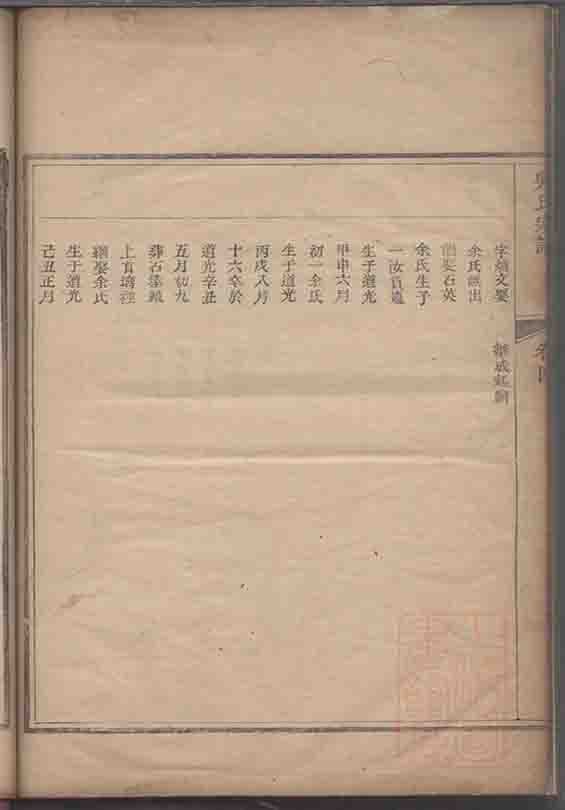 氏宗譜
卷四
字繡文娶
余氏無出
繼娶石英
余氏生子
一汝
生于道光
甲申六月
初一余氏
生于道光
丙戌八月
十六卒於
道光辛丑
五月初九
葬石
上首
續娶余氏
生于道光
己丑正月